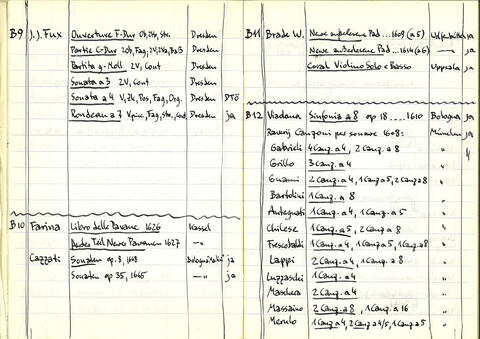 B9 J.J. Fux Ouverture F-Dur Ob, 2Vn, Str. Dresden
Partie C-Dur 2Ob, Fag, 2V, 2Va, BaB Dresden
Partita g-Moll 2V, Cont Dresden
Sonata a 3 2V, Cont Dresden
Sonata a 4 V, Zk, Pos, Fag, Org. DTÖ
Rondeau a 7 Vpicc, Fag, Str., Cont ja
B10 Farina Libro delle Pavane 1626 Kassel
Ander Teil Newer Pavanen 1627 —"—
Cazzati Sonaten op. 8, 1648 Bologna ja
Sonaten op 35, 1665 —"— ja
B11 Brade W. Newe Pad... 1609 (a5) ja
Newe Pad... 1614 (a6) —"— ja
Coral Violino Solo e Basso Uppsala ja
B12 Viadana Sinfonia a 8 op 18....1610 Bologna ja
Raverij Canzoni per sonare 1608: München ja
Gabrieli 4 Canz. a 4, 2 Canz. a 8 "
Grillo 3 Canz. a 4 "
Guami 2 Canz a 4, 1 Canz a 5, 2 Canz a 8 "
Bartolini 1 Canz. a 8 "
Antegnati 1 Canz. a 4, 1 Canz. a 5 "
Chilese 1 Canz. a 5, 2 Canz. a 8 "
Frescobaldi 1 Canz. a 4, 1 Canz. a 8 "
Lappi 2 Canz. a 4, 1 Canz. a 8 "
Luzzaschi 1 Canz. a 4 "
Maschera 2 Canz. a 4 "
Massaino 2 Canz. a 8, 1 Canz. a 16 "
Merulo 1 Canz a 4, 2 Canz a 4/5, 1 Canz a 5 "